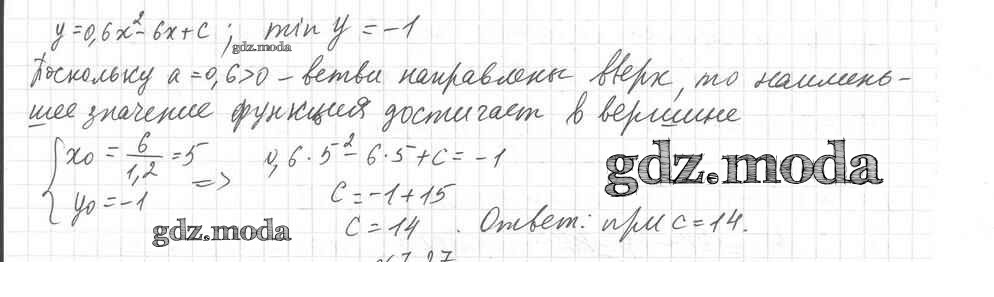 y=0,6x²-6x+c ; min y = -1
gdz.moda
Поскольку a=0,6>0 - ветви направлены вверх, то наимень-
шее значение функция достигает в вершине
{ x₀ = 6/1,2 = 5 => 0,6·5²-6·5+c = -1
gdz.moda
y₀ = -1 c = -1+15
gdz.moda
c = 14 . Ответ: при c = 14.